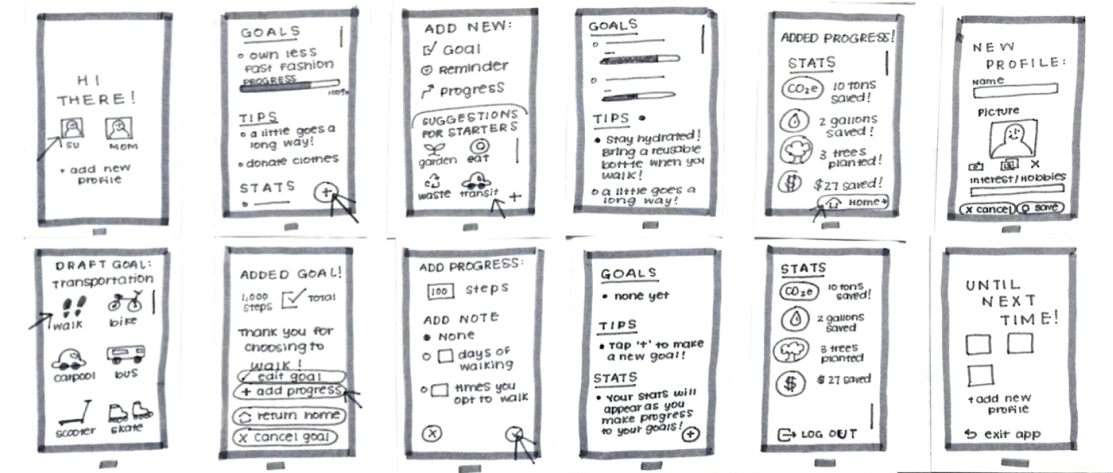 HI
THERE!
SU
MOM
+ add new
profile
GOALS
own less
fast fashion
PROGRESS
100%
TIPS
a little goes a
long way!
donate clothes
STATS
+
ADD NEW:
Goal
Reminder
progress
SUGGESTIONS
FOR STARTERS
garden
eat
waste
transit
+
GOALS
TIPS
Stay hydrated!
Bring a reusable
bottle when you
walk!
a little goes a
long way!
ADDED PROGRESS!
STATS
CO2e 10 tons
saved!
2 gallons
saved!
3 trees
planted!
$ $27 saved!
HOME
NEW
PROFILE:
Name
Picture
X
Interest/Hobbies
X cancel
save
DRAFT GOAL:
Transportation
walk
bike
carpool
bus
scooter
skate
ADDED GOAL!
1,000
steps
TOTAL
Thank you for
choosing to
walk!
edit goal
+ add progress
return home
X cancel goal
ADD PROGRESS:
100 steps
ADD NOTE
None
days of
walking
times you
opt to walk
X
GOALS
none yet
TIPS
Tap '+' to make
a new goal!
STATS
Your stats will
appear as you
make progress
to your goals!
+
STATS
CO2e 10 tons
saved!
2 gallons
saved
3 trees
planted
$ $27 saved
LOG OUT
UNTIL
NEXT
TIME!
+add new
profile
exit app